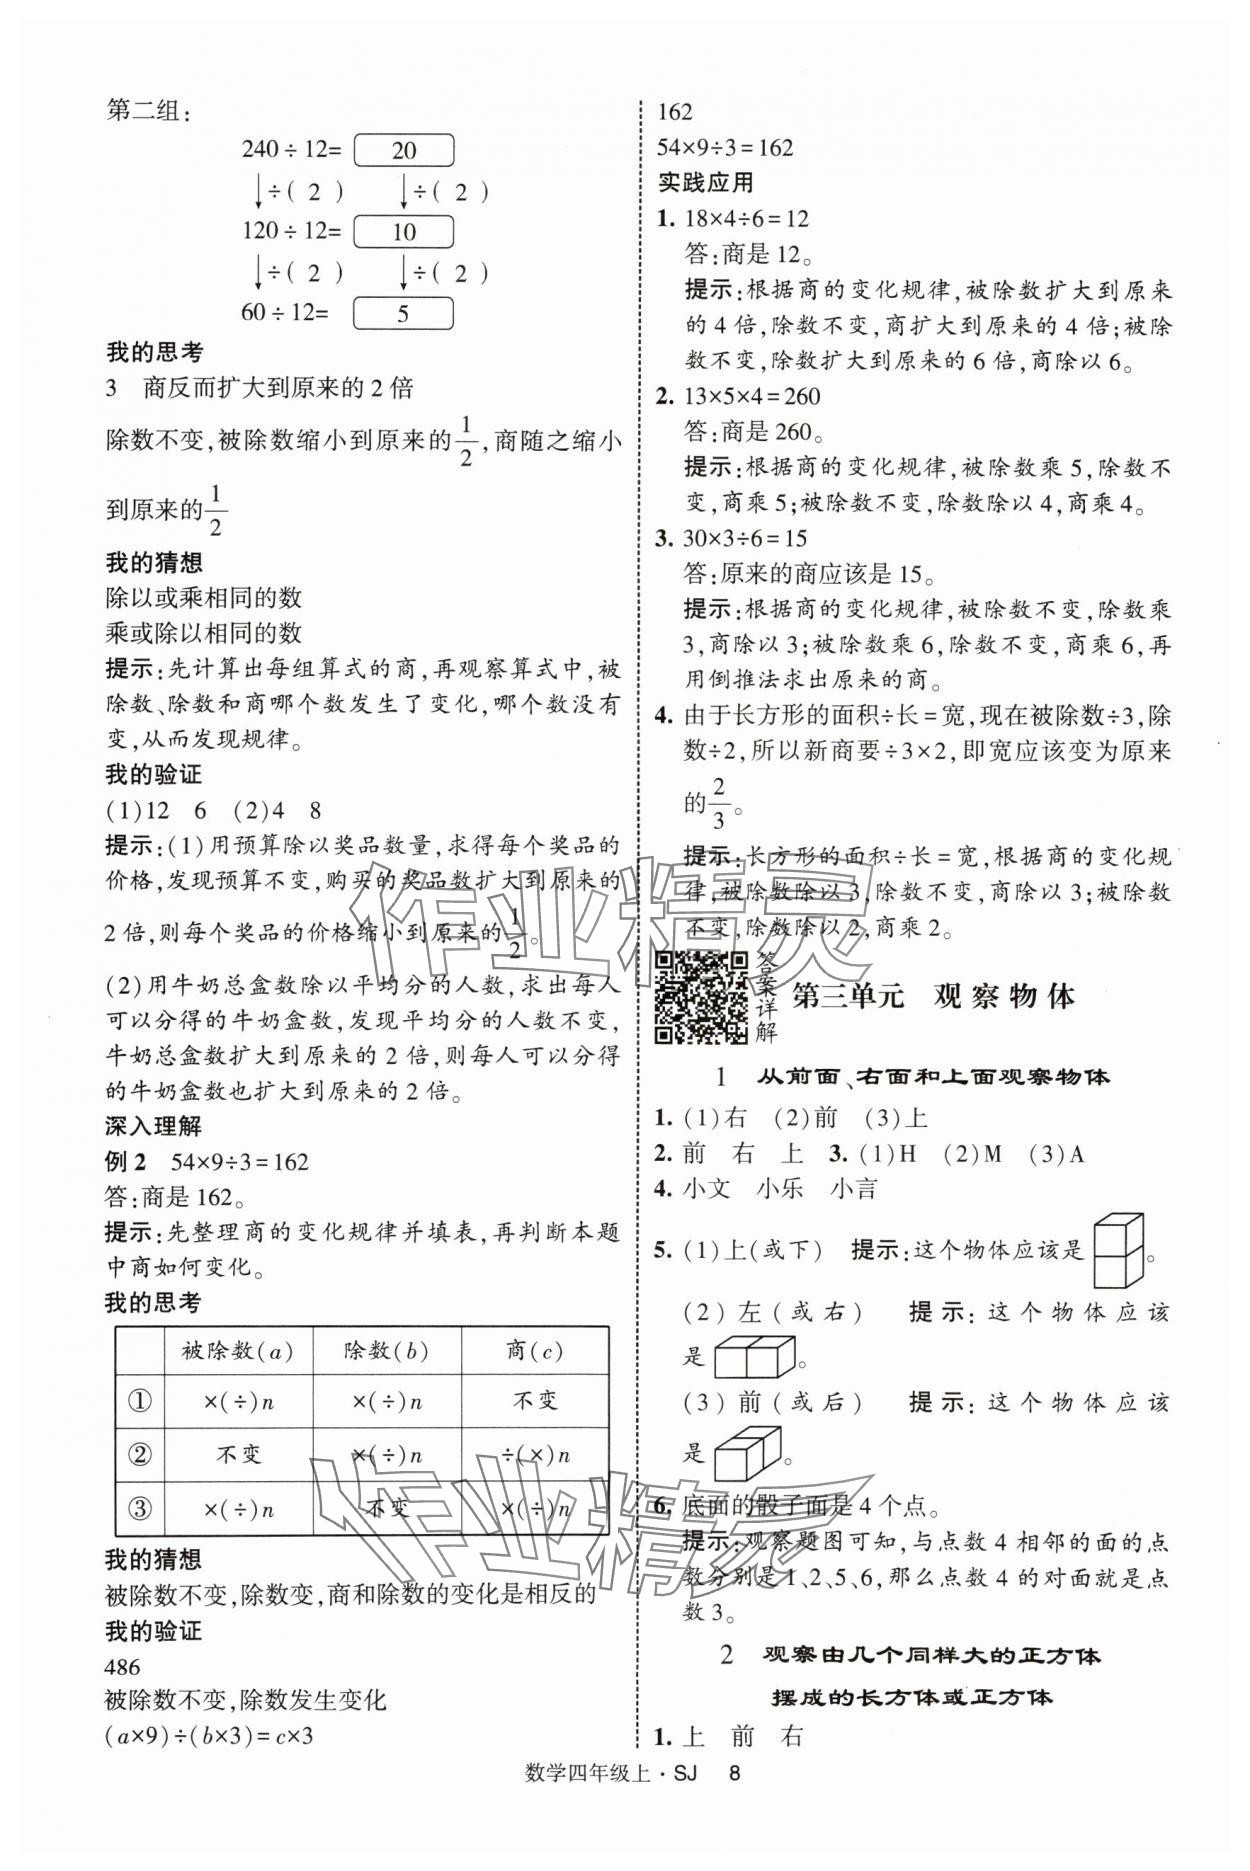 第二组:
240÷12= 20
÷( 2 ) ÷( 2 )
120÷12= 10
÷( 2 ) ÷( 2 )
60÷12= 5
我的思考
3 商反而扩大到原来的2倍
除数不变,被除数缩小到原来的1/2,商随之缩小
到原来的1/2
我的猜想
除以或乘相同的数
乘或除以相同的数
提示:先计算出每组算式的商,再观察算式中,被
除数、除数和商哪个数发生了变化,哪个数没有
变,从而发现规律。
我的验证
(1)12 6 (2)4 8
提示:(1)用预算除以奖品数量,求得每个奖品的
价格,发现预算不变,购买的奖品数扩大到原来的
2倍,则每个奖品的价格缩小到原来的1/2。
(2)用牛奶总盒数除以平均分的人数,求出每人
可以分得的牛奶盒数,发现平均分的人数不变,
牛奶总盒数扩大到原来的2倍,则每人可以分得
的牛奶盒数也扩大到原来的2倍。
深入理解
例2 54×9÷3=162
答:商是162。
提示:先整理商的变化规律并填表,再判断本题
中商如何变化。
我的思考
被除数(a) 除数(b) 商(c)
① ×(÷)n ×(÷)n 不变
② 不变 ×(÷)n ÷(×)n
③ ×(÷)n 不变 ×(÷)n
我的猜想
被除数不变,除数变,商和除数的变化是相反的
我的验证
486
被除数不变,除数发生变化
(a×9)÷(b×3)=c×3
162
54×9÷3=162
实践应用
1. 18×4÷6=12
答:商是12。
提示:根据商的变化规律,被除数扩大到原来
的4倍,除数不变,商扩大到原来的4倍;被除
数不变,除数扩大到原来的6倍,商除以6。
2. 13×5×4=260
答:商是260。
提示:根据商的变化规律,被除数乘5,除数不
变,商乘5;被除数不变,除数除以4,商乘4。
3. 30×3÷6=15
答:原来的商应该是15。
提示:根据商的变化规律,被除数不变,除数乘
3,商除以3;被除数乘6,除数不变,商乘6,再
用倒推法求出原来的商。
4. 由于长方形的面积÷长=宽,现在被除数÷3,除
数÷2,所以新商要÷3×2,即宽应该变为原来
的2/3。
提示:长方形的面积÷长=宽,根据商的变化规
律,被除数除以3,除数不变,商除以3;被除数
不变,除数除以2,商乘2。
答案详解
第三单元 观察物体
1 从前面、右面和上面观察物体
1. (1)右 (2)前 (3)上
2. 前 右 上 3. (1)H (2)M (3)A
4. 小文 小乐 小言
5. (1)上(或下) 提示:这个物体应该是 。
(2)左(或右) 提示:这个物体应该
是 。
(3)前(或后) 提示:这个物体应该
是 。
6. 底面的骰子面是4个点。
提示:观察题图可知,与点数4相邻的面的点
数分别是1、2、5、6,那么点数4的对面就是点
数3。
2 观察由几个同样大的正方体
摆成的长方体或正方体
1. 上 前 右
数学四年级上·SJ 8
作业精灵
作业精灵